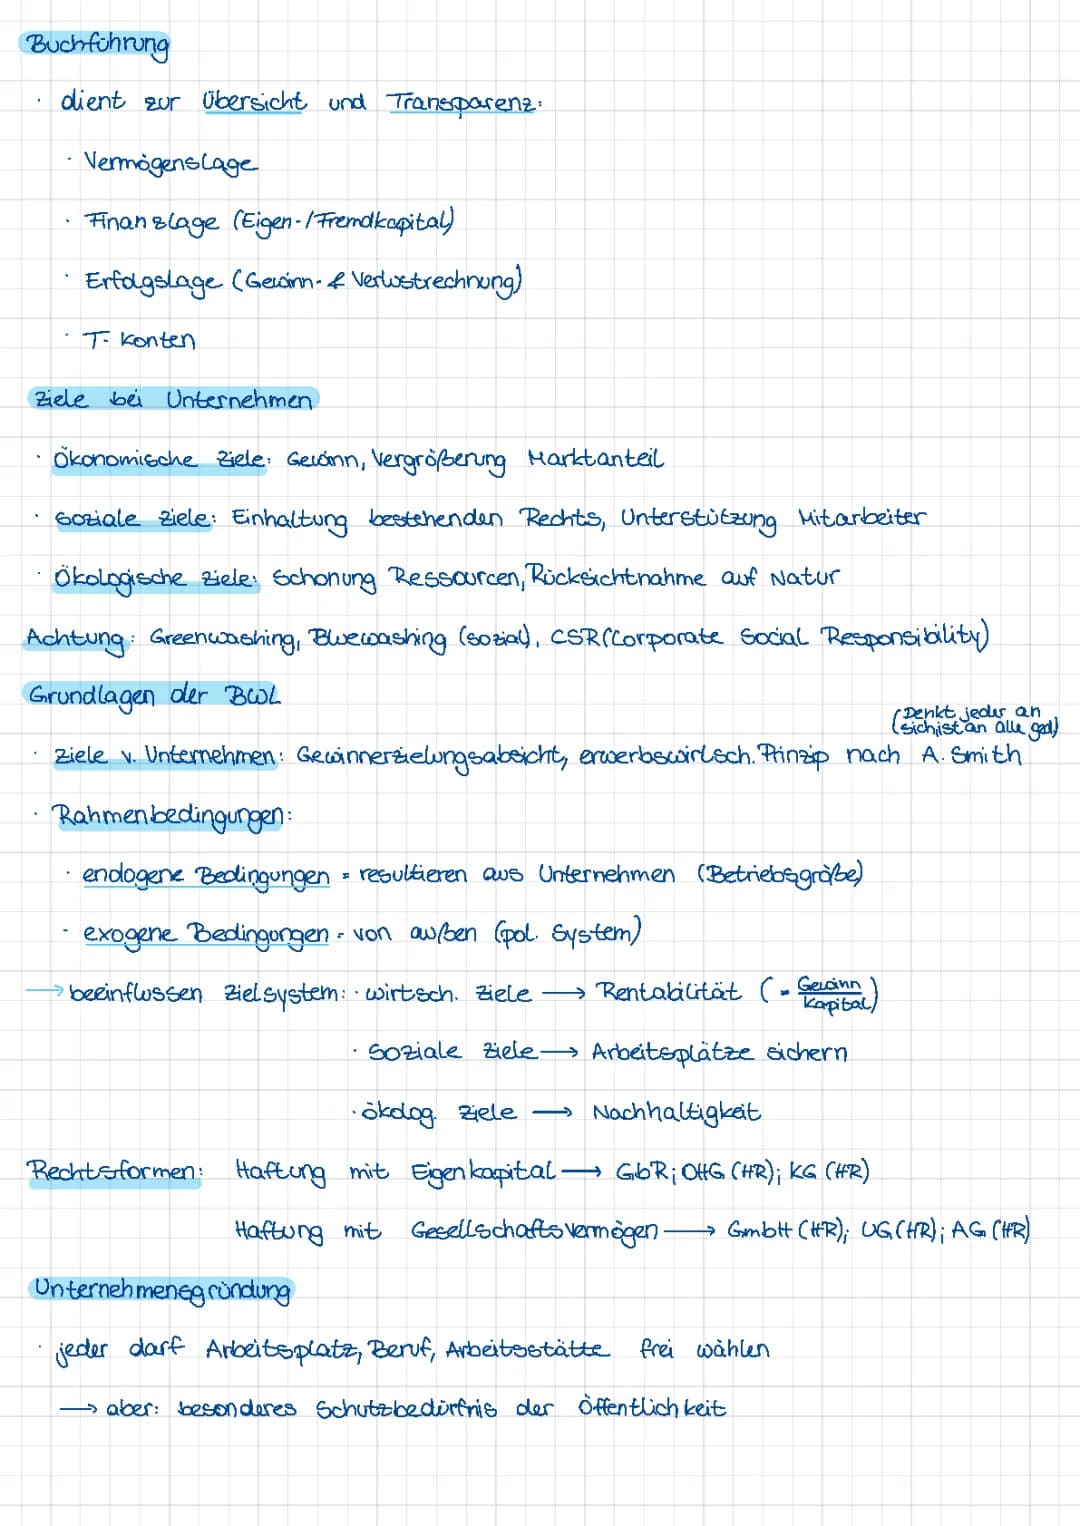 Buchführung
· dient zur Übersicht und Transparenz:
· Vermögenslage
· Finanzlage (Eigen-/Fremdkapital)
· Erfolgslage (Gewinn- & Verlustrechnung)
· T-Konten
Ziele bei Unternehmen
· Ökonomische Ziele: Gewinn, Vergrößerung Marktanteil
· soziale Ziele: Einhaltung bestehenden Rechts, Unterstützung Mitarbeiter
· Ökologische Ziele: Schonung Ressourcen, Rücksichtnahme auf Natur
Achtung: Greenwashing, Bluewashing (sozial), CSR (Corporate Social Responsibility)
Grundlagen der BWL
(Denkt jeder an
sich ist an alle ged)
· Ziele v. Unternehmen: Gewinnerzielungsabsicht, erwerbswirtsch. Prinzip nach A. Smith
· Rahmenbedingungen:
· endogene Bedingungen = resultieren aus Unternehmen (Betriebsgröße)
· exogene Bedingungen = von außen (pol. System)
→ beeinflussen Zielsystem: · wirtsch. Ziele → Rentabilität (= Gewinn/Kapital)
· Soziale Ziele → Arbeitsplätze sichern
· ökolog. Ziele → Nachhaltigkeit
Rechtsformen: Haftung mit Eigenkapital → GbR; OHG (HR); KG (HR)
Haftung mit Gesellschaftsvermögen → GmbH (HR); UG (HR); AG (HR)
Unternehmensgründung
· jeder darf Arbeitsplatz, Beruf, Arbeitsstätte frei wählen
→ aber: besonderes Schutzbedürfnis der Öffentlichkeit